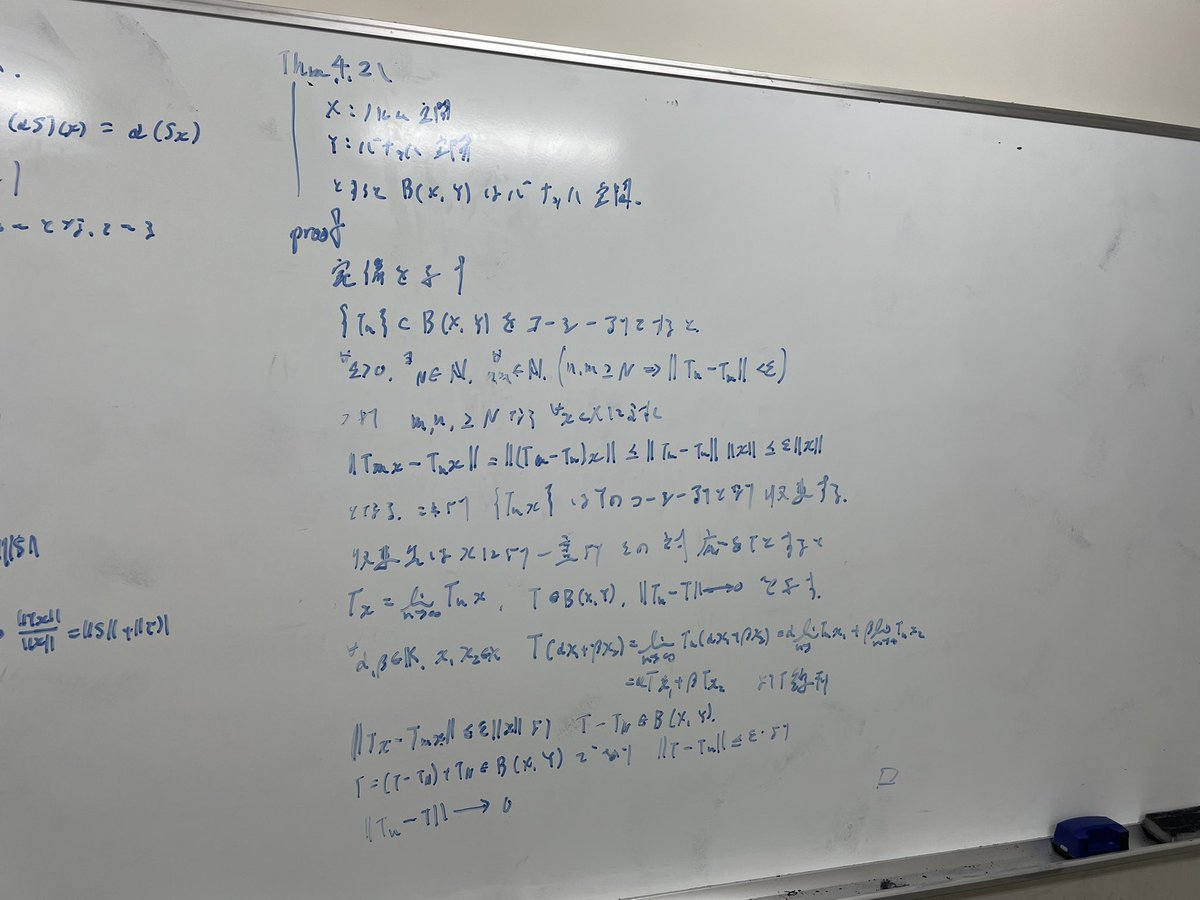 (αS)(x) = α(Sx)
‖Tx‖/‖x‖ = ‖S‖+‖T‖
Thm 4.21
X: ノルム空間
Y: バナッハ空間
とすると B(X, Y) はバナッハ空間.
proof
完備を示す
{Tn} ⊂ B(X, Y) をコーシー列とすると
∀ε>0, ∃N∈ℕ, ∀ ∈ℕ. (n,m ≥ N ⇒ ‖Tn−Tm‖ <ε)
m,n, ≥ N ∀x∈Xに対して
‖Tmx − Tnx‖ = ‖(Tm−Tn)x‖ ≤ ‖Tm−Tn‖ ‖x‖ ≤ ε‖x‖
となる. {Tnx} はYのコーシー列 収束する.
収束先はxにより一意より その対応をTとすると
Tx = lim n→∞ Tnx, T∈B(X,Y), ‖Tn−T‖→0 を示す.
∀α,β∈K, x₁,x₂∈X T(αx₁+βx₂) = lim n→∞ Tn(αx₁+βx₂) = α lim Tnx₁ + β lim Tnx₂
= αTx₁+βTx₂ よりT線形
‖Tx−Tmx‖ ≤ ε‖x‖ より T−TN∈B(X, Y).
T=(T−TN)+TN∈B(X,Y) であり ‖T−Tn‖ ≤ ε. より
‖Tn−T‖ → 0
□